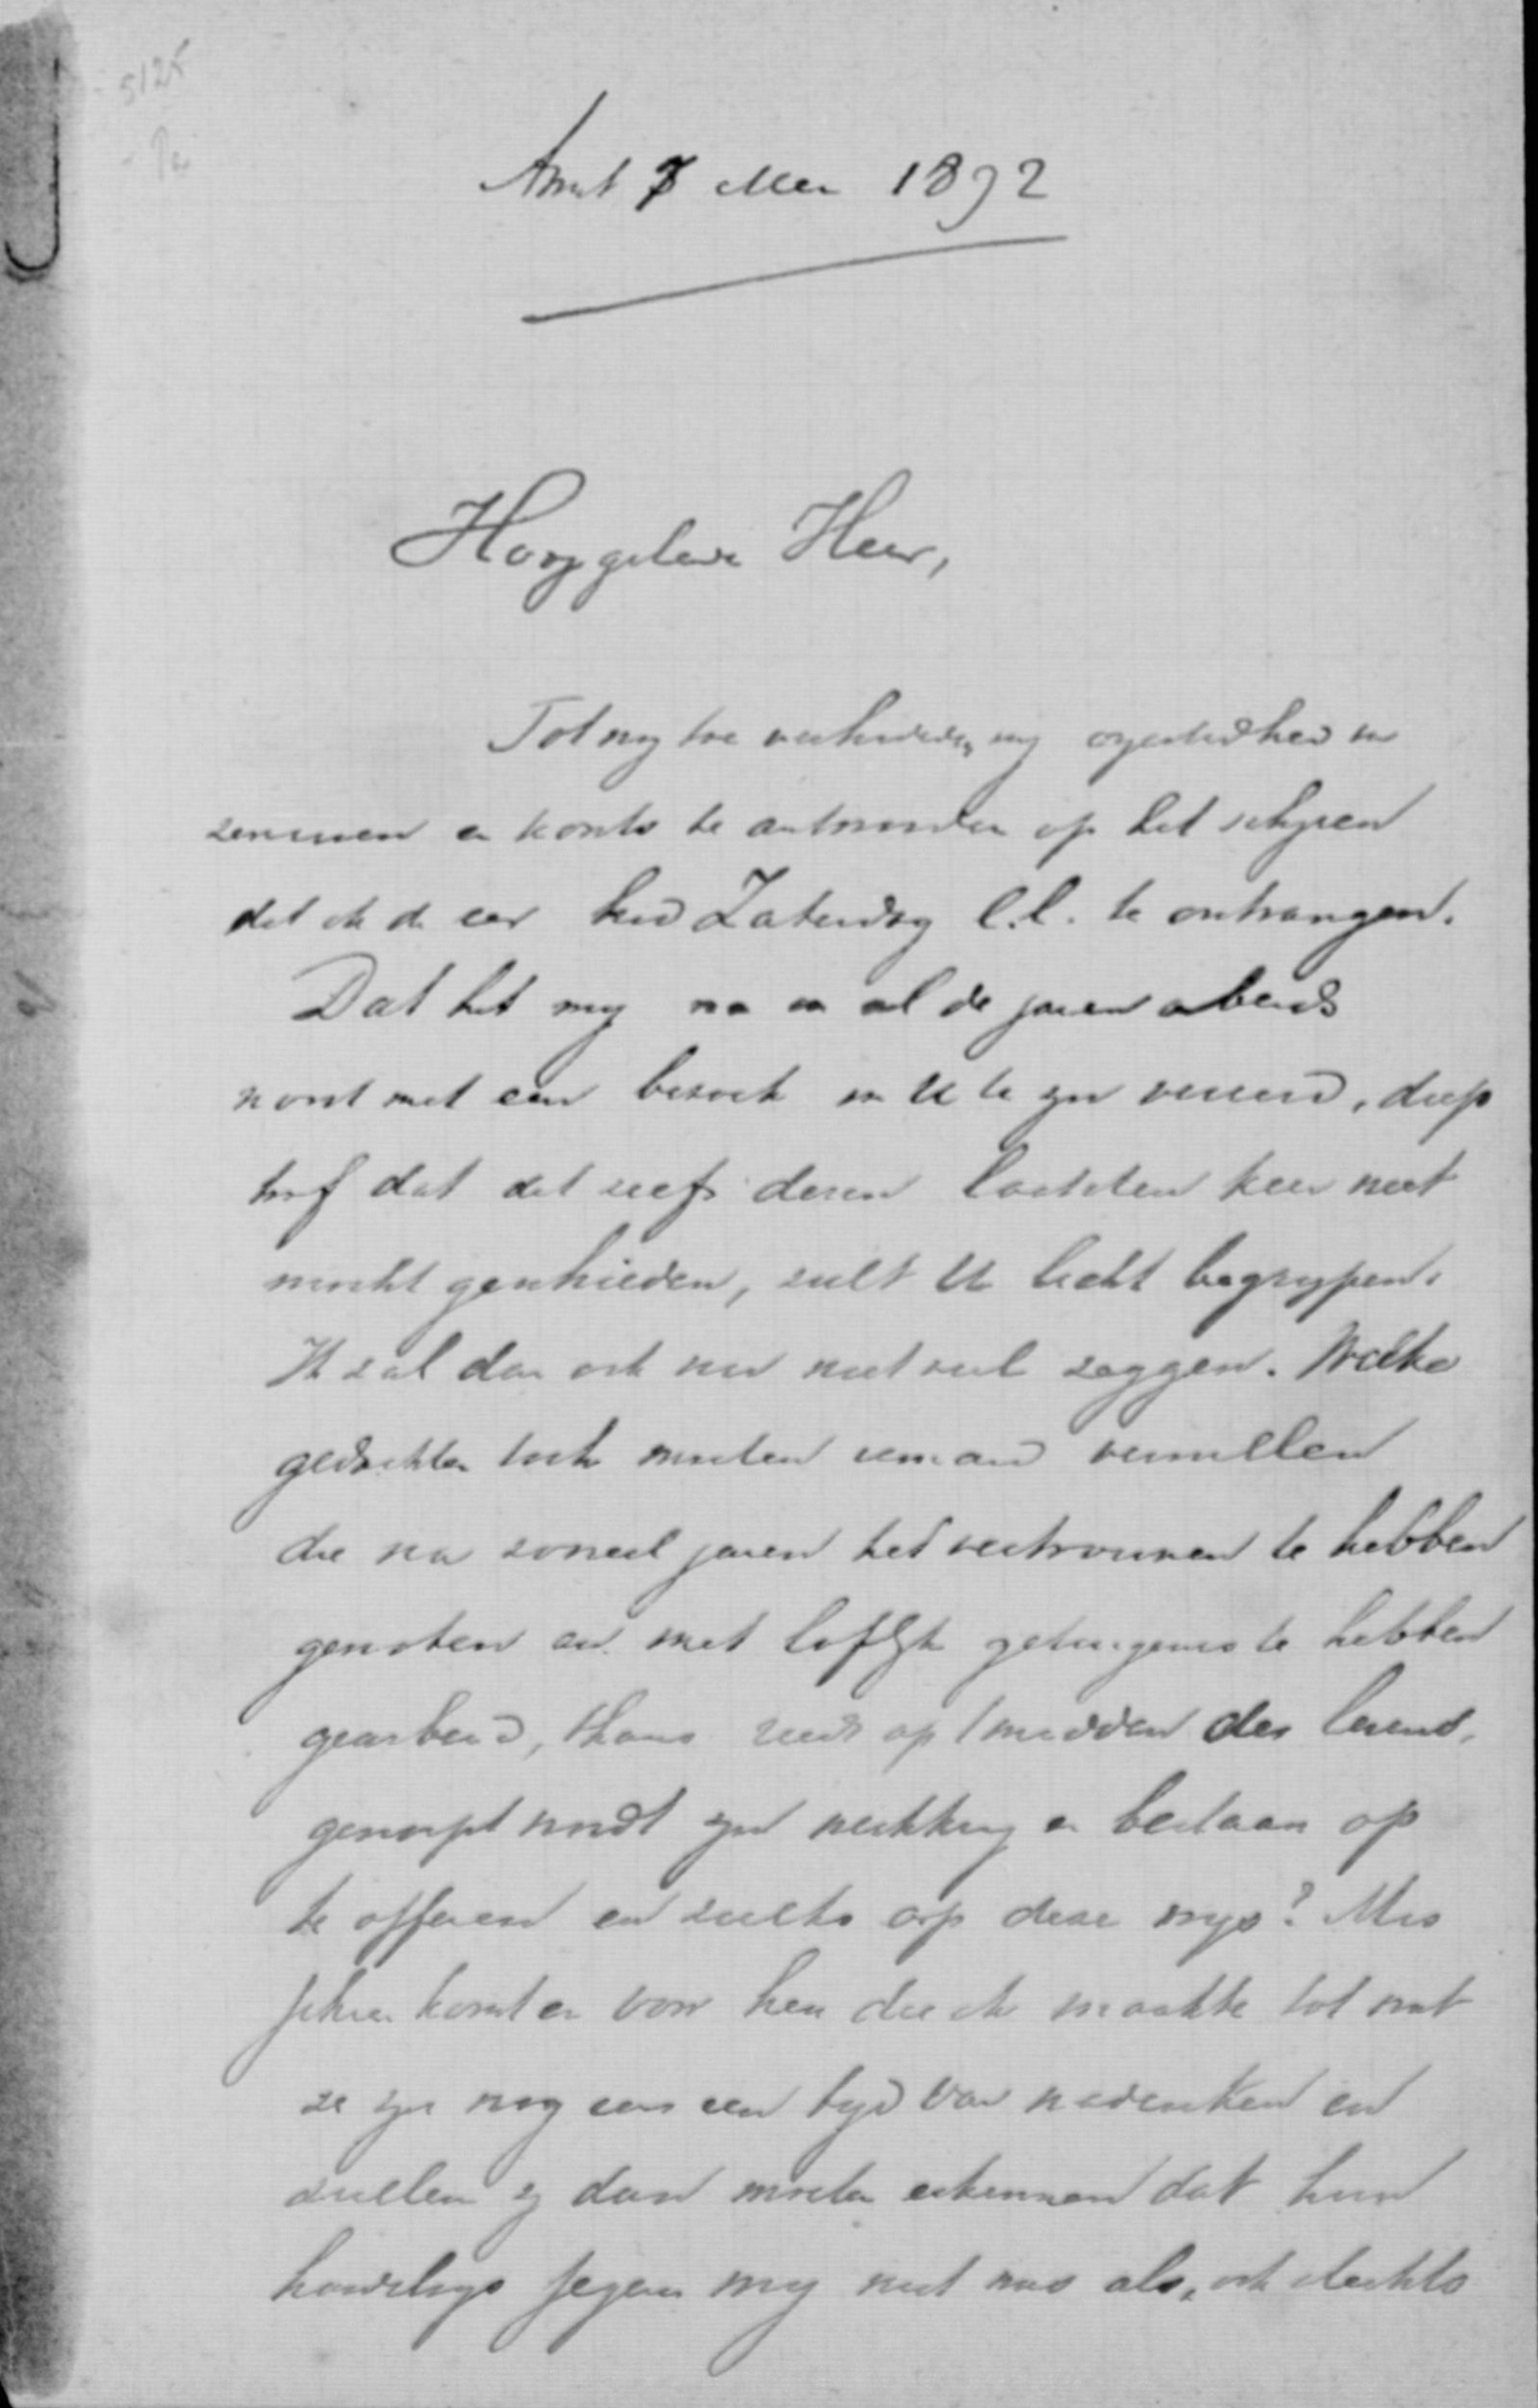 5125
Amst 7 Mei 1892
Hooggeleerde Heer,
Tot nog toe verhinderden mij ongesteldheid van
zenuwen en koorts te antwoorden op het schrijven
dat ik de eer had Zaterdag l.l. te ontvangen.
Dat het mij na al de jaren arbeids
nooit met een bezoek van U te zijn vereerd, diep
trof dat dit zelfs dezen laatsten keer niet
mocht geschieden, zult U licht begrijpen.
Ik zal dan ook nu niet veel zeggen. Welke
gedachten toch moeten iemand vervullen
die na zooveel jaren het vertrouwen te hebben
genoten en met loflijk getuigenis te hebben
gearbeid, thans reeds op 't midden des levens,
genoopt wordt zijn werkkring en bestaan op
te offeren en zulks op deze wijs? Mis
schien komt er voor hen die ik maakte tot wat
ze zijn nog eens een tijd van nadenken en
zullen zij dan moeten erkennen dat hun
handelwijs jegens mij niet was als, ook slechts